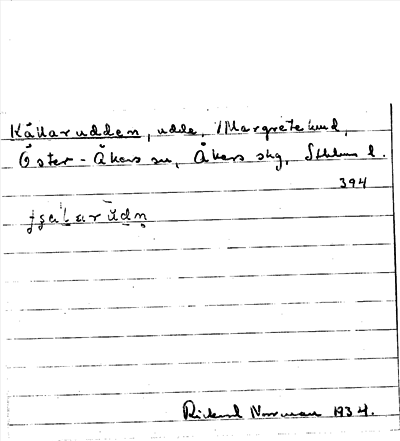 Källarudden, udde, Margretelund,
Öster-Åkers sn, Åkers skg, Sthlms l.
394
Rickard Norrman 1934.